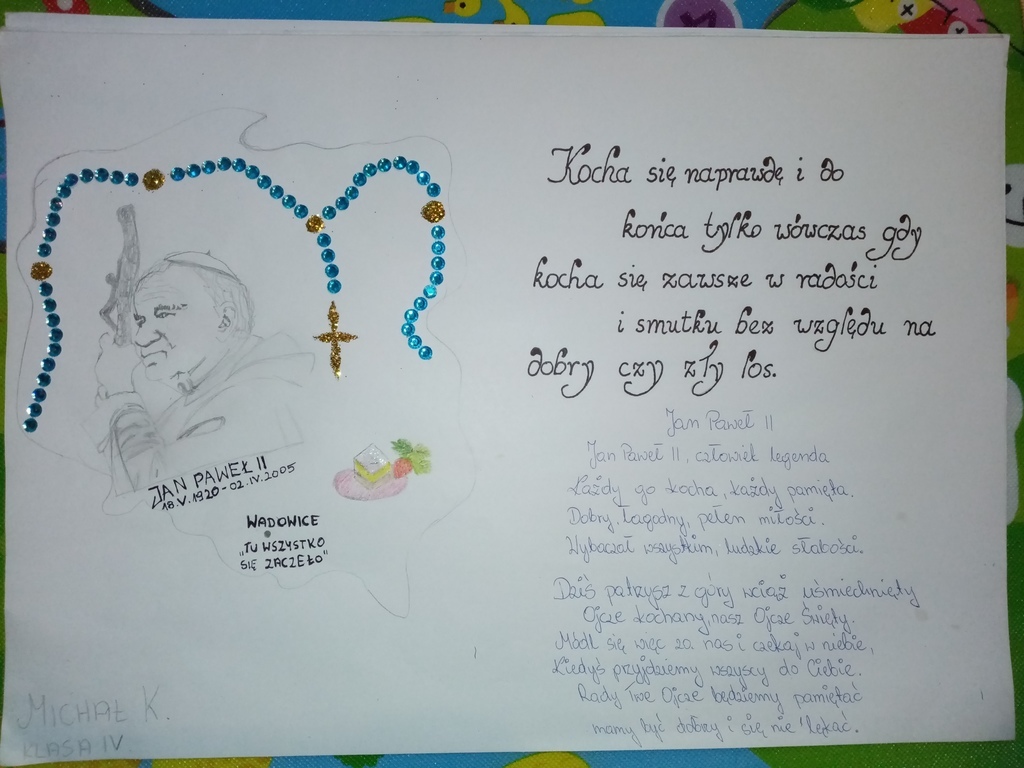 JAN PAWEŁ II
18.V.1920-02.IV.2005
WADOWICE
„TU WSZYSTKO
SIĘ ZACZEŁO"
MICHAŁ K.
KLASA IV
Kocha się naprawdę i do
końca tylko wówczas gdy
kocha się zawsze w radości
i smutku bez względu na
dobry czy zły los.
Jan Paweł II
Jan Paweł II, człowiek legenda
Każdy go kocha, każdy pamięta.
Dobry, Łagodny, pełen miłości.
Wybaczał wszystkim, ludzkie słabości.
Dziś patrzysz z góry wciąż uśmiechnięty
Ojcze kochany, nasz Ojcze Święty.
Módl się więc za nas i czekaj w niebie,
Kiedyś przyjdziemy wszyscy do Ciebie.
Rady Twe Ojcze będziemy pamiętać
mamy być dobrzy i się nie lękać.